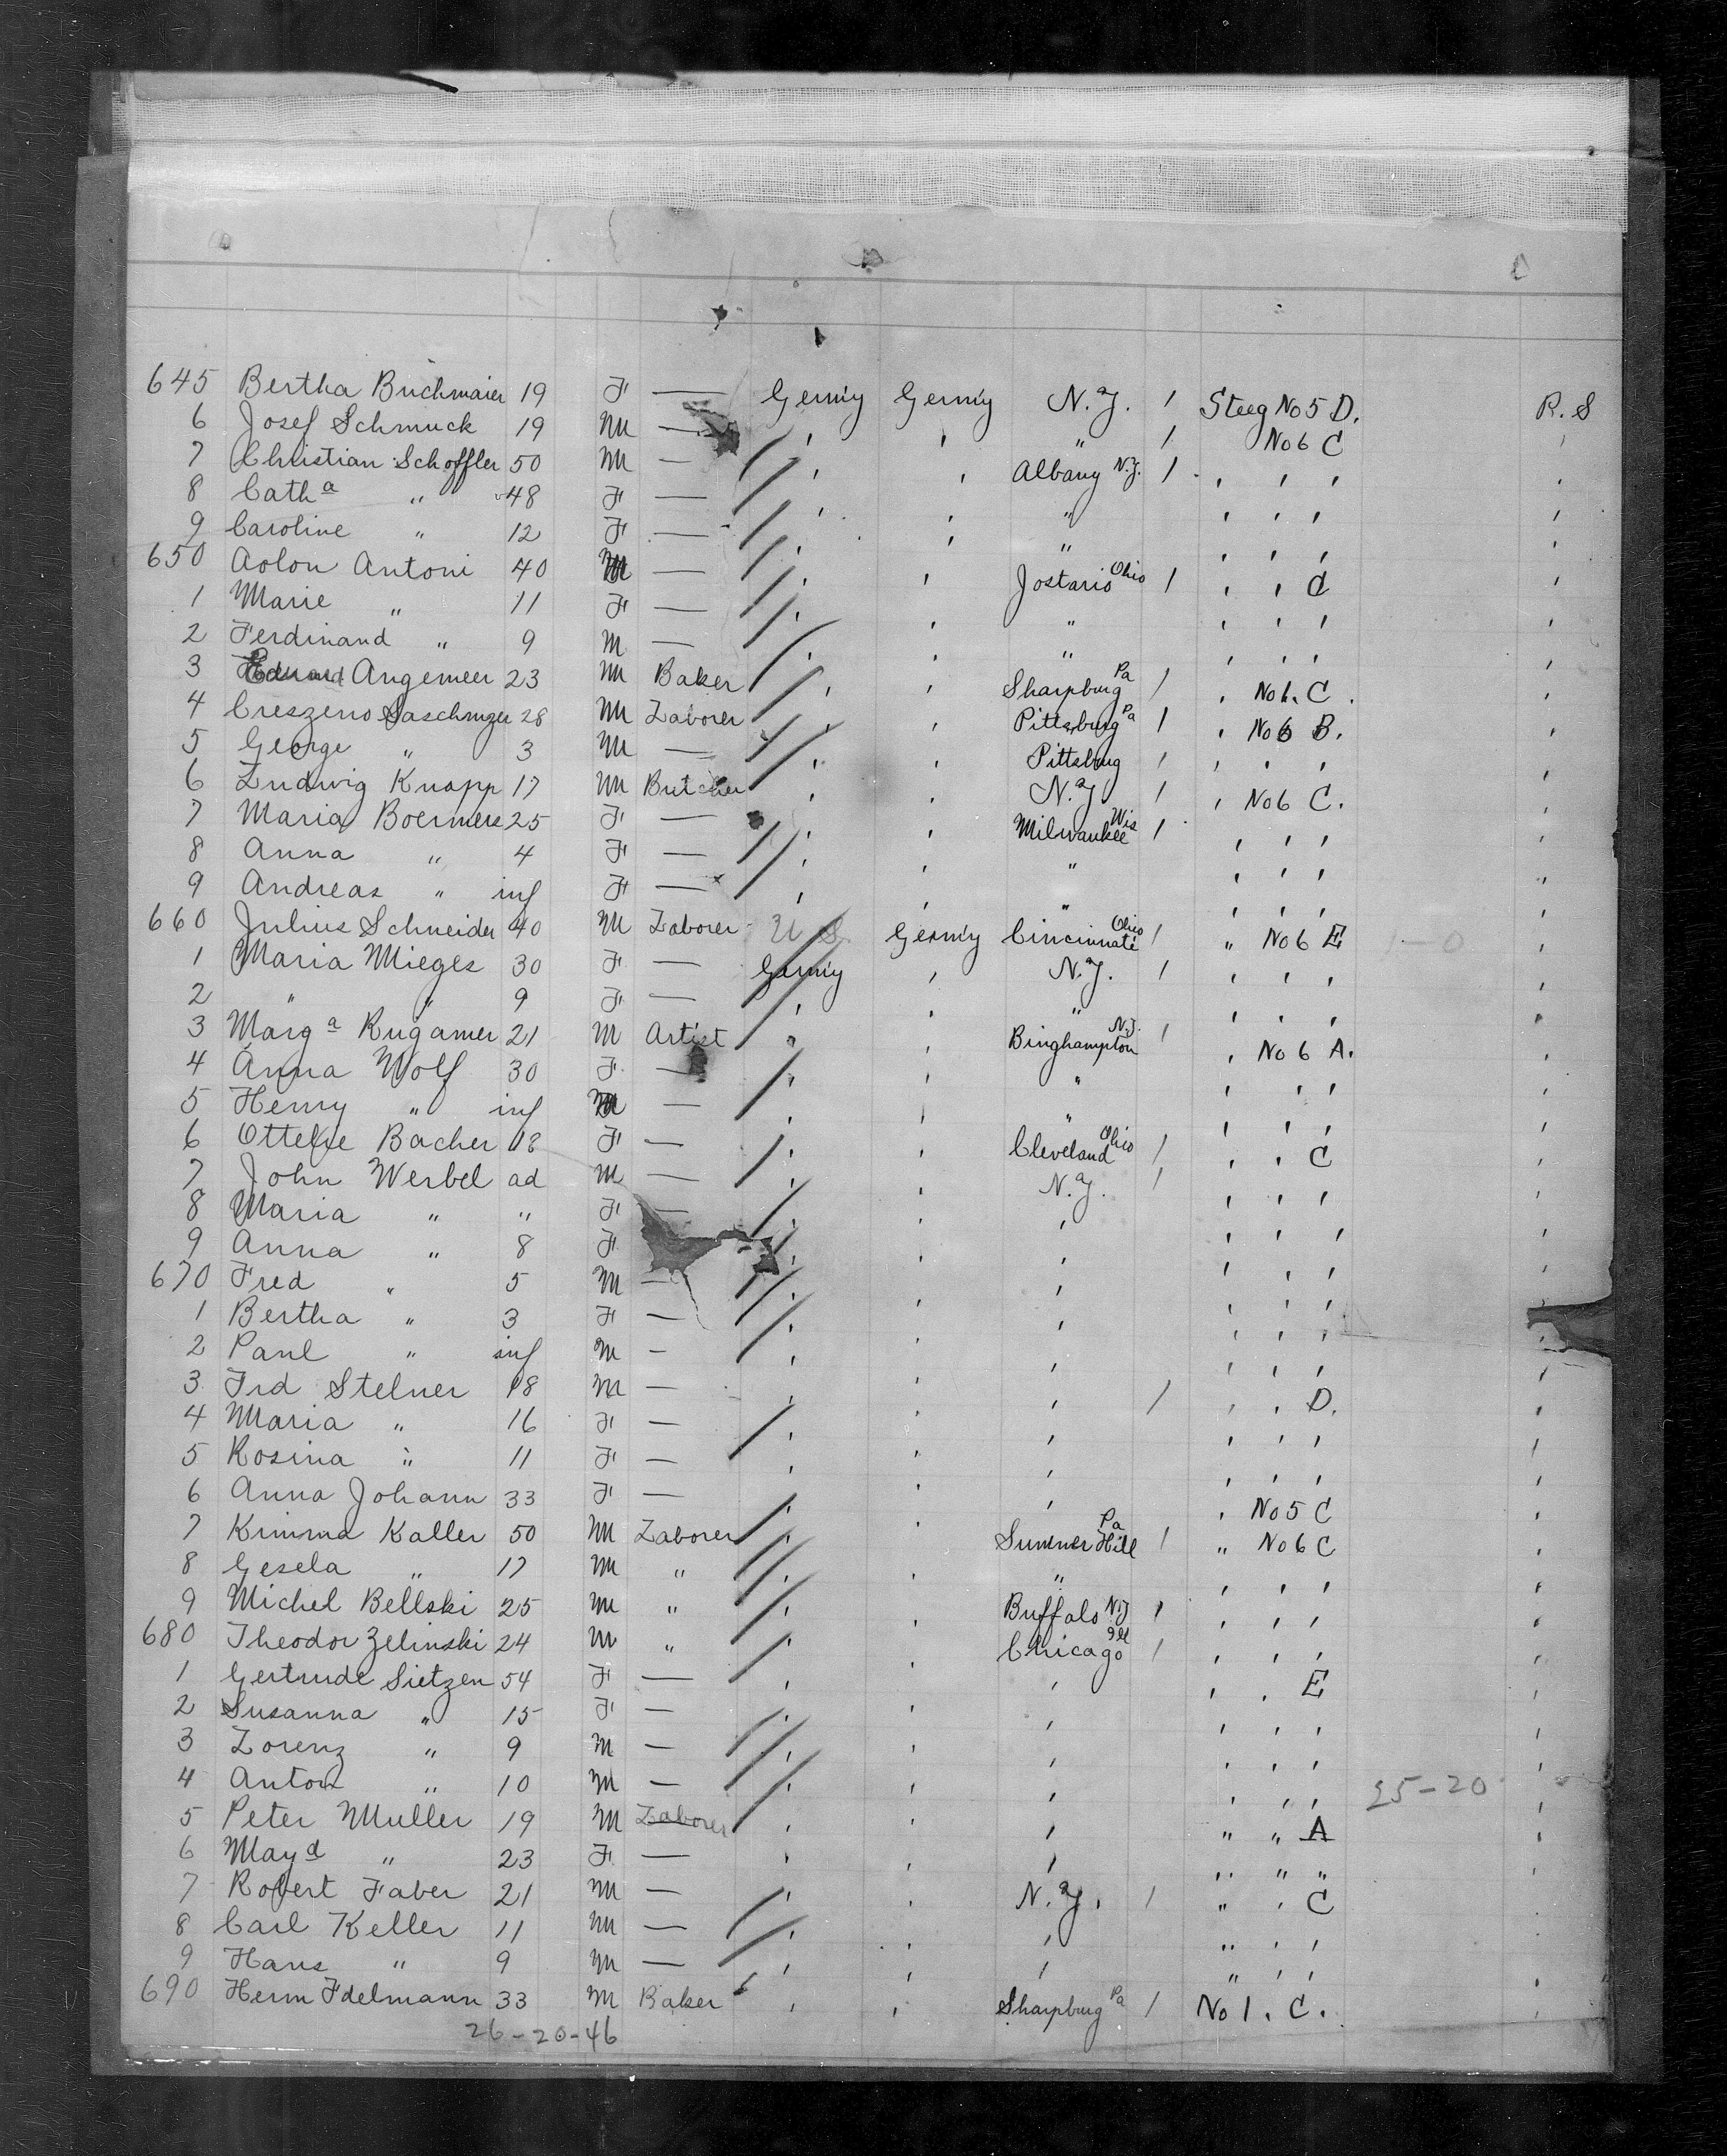 645 Bertha Buchmaier 19 F — Germ'y Germ'y N.Y. 1 Steeg No 5 D. R. S
6 Josef Schmuck 19 M — ' ' " 1 No 6 C '
7 Christian Schoffler 50 M — ' ' Albany N.Y. 1 ' ' ' '
8 Cath a " 48 F — ' ' " ' ' ' '
9 Caroline " 12 F — ' ' " ' ' ' '
650 Aolon Antoni 40 M — ' ' Jostario Ohio 1 ' ' C '
1 Marie " 11 F — ' ' " ' ' ' '
2 Ferdinand " 9 M — ' ' " ' ' ' '
3 Angemeer 23 M Baker ' ' Sharpburg Pa 1 ' No 1. C. '
4 Creszeno Saschinger 28 M Laborer ' ' Pittsburg Pa 1 ' No 6 B. '
5 George " 3 M — ' ' Pittsburg 1 ' ' ' '
6 Ludwig Knapp 17 M Butcher ' ' N.Y. 1 ' No 6 C. '
7 Maria Boermers 25 F — ' ' Milwaukee Wis 1 ' ' ' '
8 Anna " 4 F — ' ' " ' ' ' '
9 Andreas " inf F — ' ' " ' ' ' '
660 Julius Schneider 40 M Laborer U S Germ'y Cincinnati Ohio 1 " No 6 E 1-0 '
1 Maria Mieges 30 F — Germ'y ' N.Y. 1 ' ' ' '
2 " " 9 F — ' ' " ' ' ' '
3 Marg a Rugamer 21 M Artist ' ' Binghampton N.Y. 1 ' No 6 A. '
4 Anna Wolf 30 F — ' ' " ' ' ' '
5 Henry " inf M — ' ' " ' ' ' '
6 Ottelie Bacher 18 F — ' ' Cleveland Ohio 1 ' ' C '
7 John Werbel ad M — ' ' N.Y. 1 ' ' ' '
8 Maria " " F — ' ' ' ' ' ' '
9 Anna " 8 F ' ' ' ' ' ' '
670 Fred " 5 M — ' ' ' ' ' ' '
1 Bertha " 3 F — ' ' ' ' ' ' '
2 Paul " inf M - ' ' ' ' ' ' '
3 Frd Stelner 18 M — ' ' ' 1 ' ' D. '
4 Maria " 16 F — ' ' ' ' ' ' '
5 Rosina " 11 F — ' ' ' ' ' ' '
6 Anna Johann 33 F — ' ' ' ' No 5 C '
7 Kimma Kaller 50 M Laborer ' ' Sumner Hill Pa 1 " No 6 C '
8 Gesela " 17 M " ' ' " ' ' ' '
9 Michel Bellski 25 M " ' ' Buffalo N.Y 1 ' ' ' '
680 Theodor Zelinski 24 M " ' ' Chicago Ill 1 ' ' ' '
1 Gertrude Sietzen 54 F — ' ' ' ' ' E '
2 Susanna " 15 F — ' ' ' ' ' ' '
3 Lorenz " 9 M — ' ' ' ' ' ' '
4 Anton " 10 M — ' ' ' ' ' ' 25-20 '
5 Peter Muller 19 M Laborer ' ' ' " " A '
6 May d " 23 F — ' ' ' " " " '
7 Robert Faber 21 M — ' ' N.Y. 1 " ' C
8 Carl Keller 11 M — ' ' ' " ' '
9 Hans " 9 M — ' ' ' " ' ' '
690 Herm Idelmann 33 M Baker ' ' Sharpburg Pa 1 No 1. C. '
26-20-46